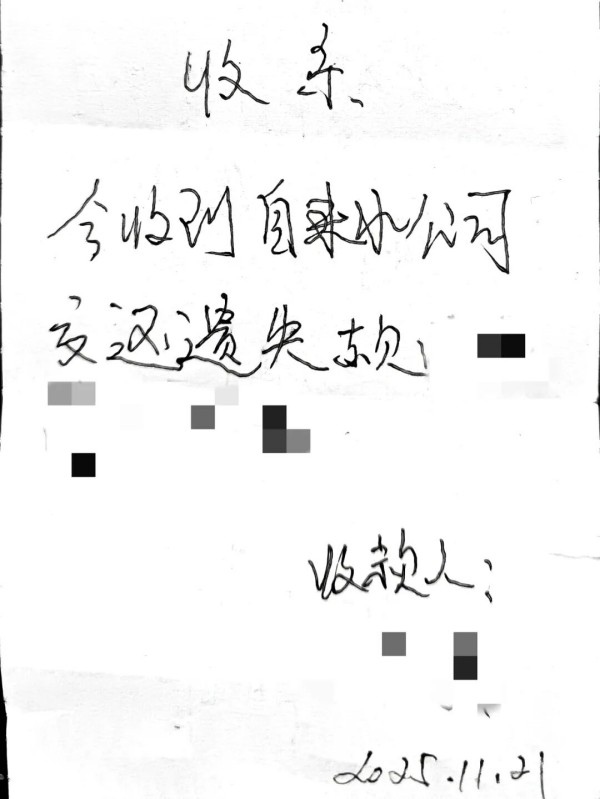 收条
今收到自来水公司
交还遗失款:
收款人:
2025.11.21